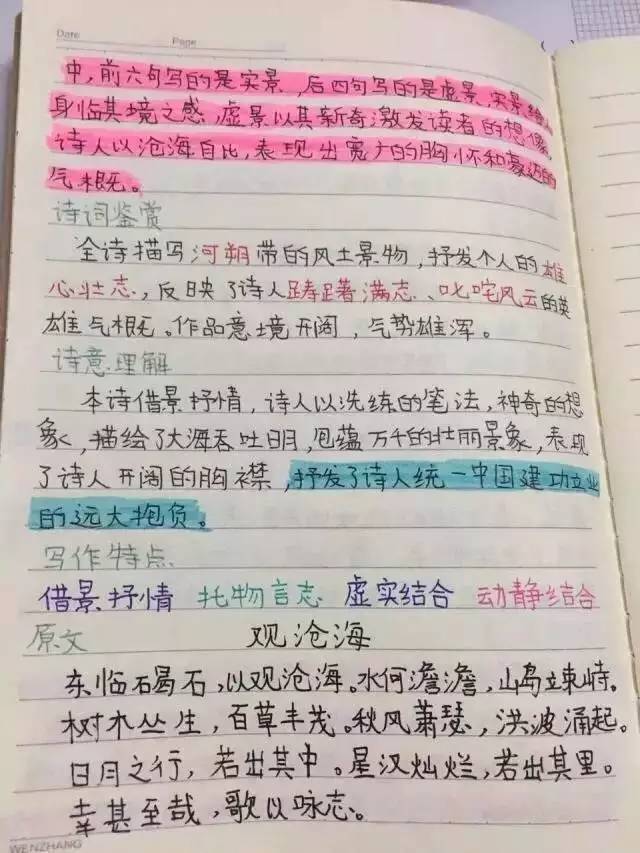 Date
Page
中，前六句写的是实景，后四句写的是虚景，实景给
身临其境之感，虚景以其新奇激发读者的想像，
诗人以沧海自比，表现出宽广的胸怀和豪迈的
气概。
诗词鉴赏
全诗描写河朔带的风土景物，抒发个人的雄
心壮志，反映了诗人踌躇满志、叱咤风云的英
雄气概。作品意境开阔，气势雄浑。
诗意理解
本诗借景抒情，诗人以洗练的笔法，神奇的想
象，描绘了大海吞吐日月，包蕴万千的壮丽景象，表现
了诗人开阔的胸襟，抒发了诗人统一中国建功立业
的远大抱负。
写作特点
借景抒情 托物言志 虚实结合 动静结合
原文 观沧海
东临碣石，以观沧海。水何澹澹，山岛竦峙。
树木丛生，百草丰茂。秋风萧瑟，洪波涌起。
日月之行，若出其中。星汉灿烂，若出其里。
幸甚至哉，歌以咏志。
WENZHANG